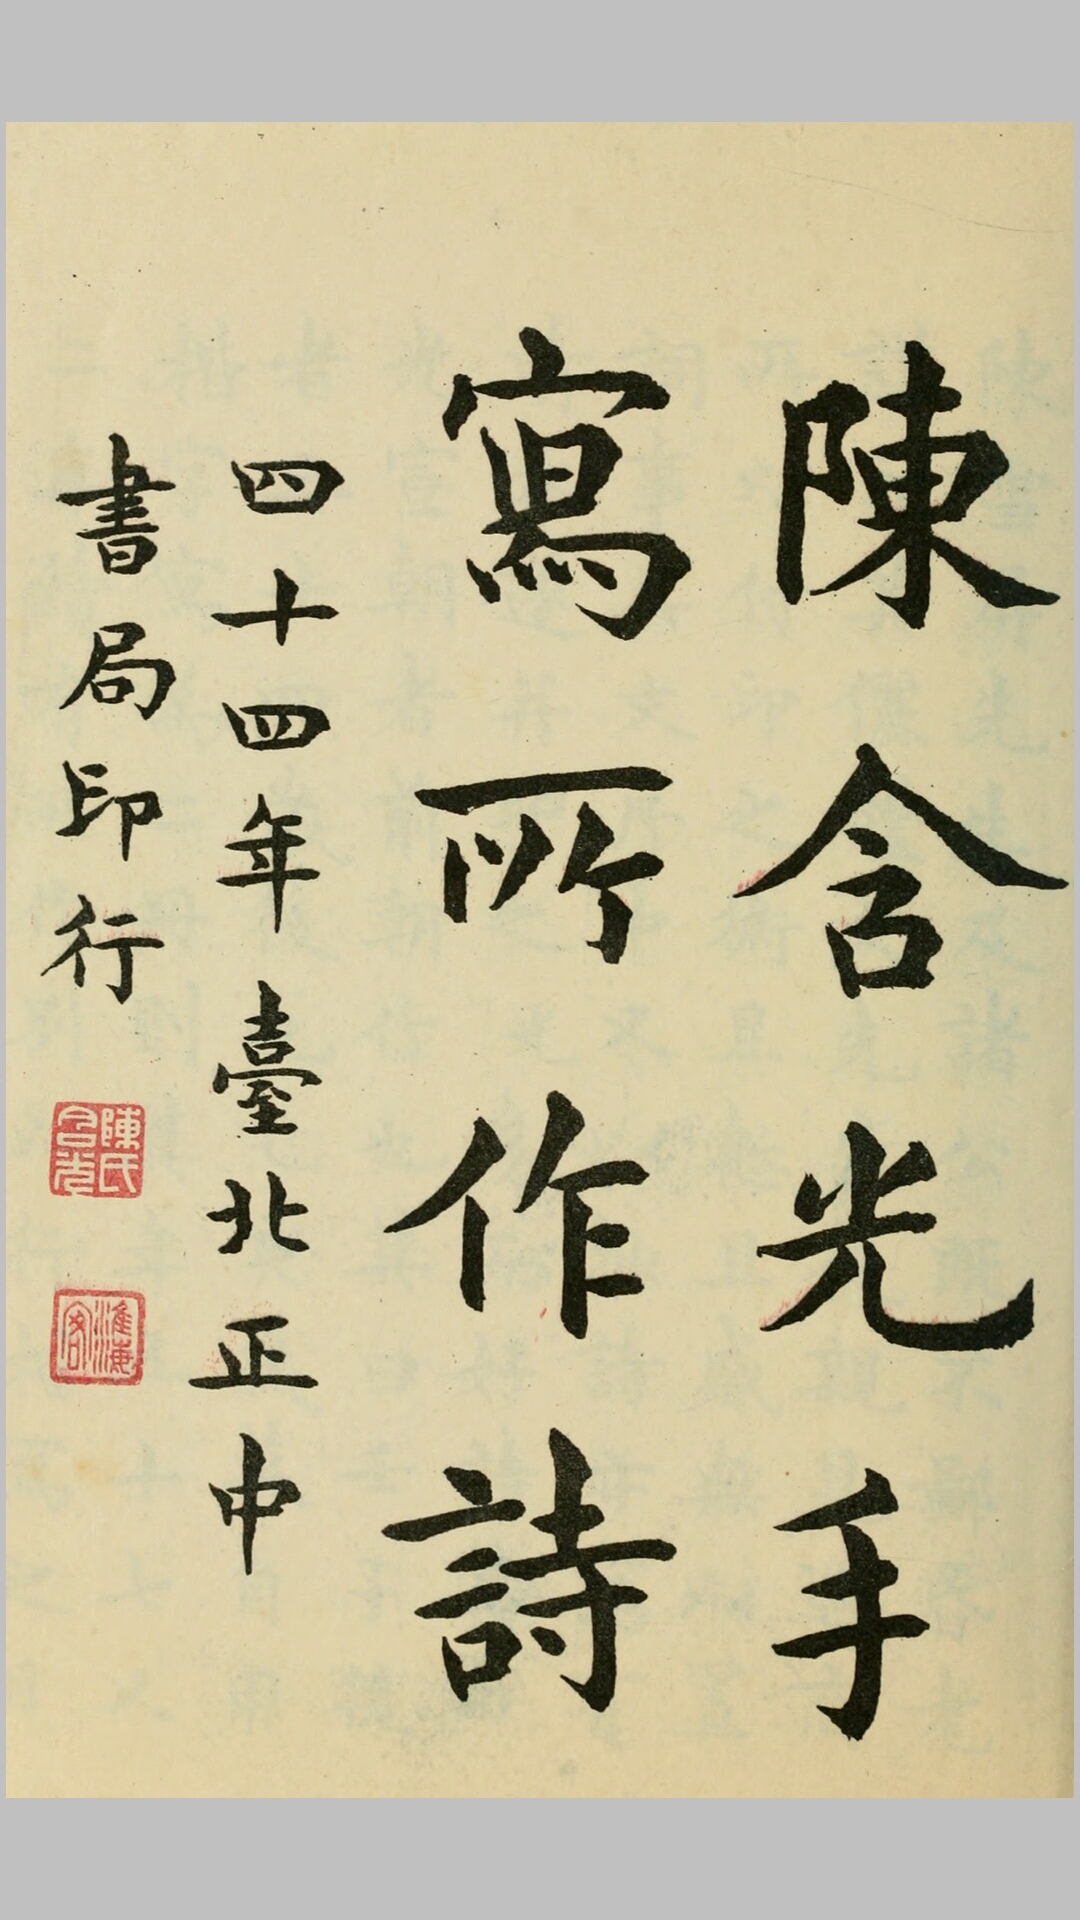 陳含光手
寫所作詩
四十四年臺北正中
書局印行
陳氏含光
淮海客